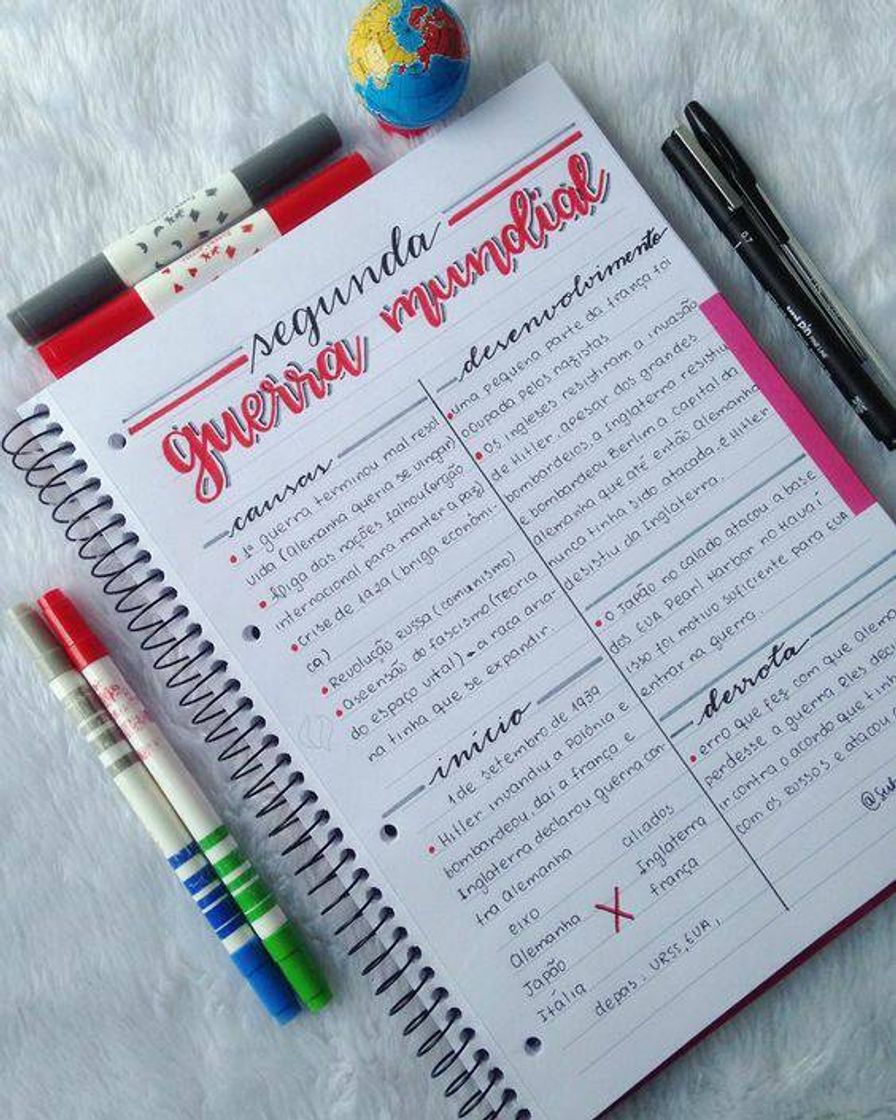 segunda
guerra mundial
causas
1ª guerra terminou mal resol
vida (Alemanha queria se vingar)
Aliga das nações falhou (orgão
internacional para manter a paz)
crise de 1929 (briga econômi-
ca)
Revolução Russa (comunismo)
Ascensão do fascismo (Teoria
do espaço vital) → a raça aria-
na tinha que se expandir.
início
1 de setembro de 1939
Hitler invandiu a Polônia e
bombardeou, daí a frança e
Inglaterra declarou guerra con-
tra Alemanha
eixo aliados
Alemanha X Inglaterra
Japão frança
Itália depas. URSS, EUA,
desenvolvimento
uma pequena parte da frança foi
ocupada pelos nazistas
Os ingleses resistiram a invasão
de Hitler. apesar dos grandes
bombardeios, a Inglaterra resistiu
e bombardeou Berlim a capital da
Alemanha que até então Alemanha
nunca tinha sido atacada. e Hitler
desistiu da Inglaterra.
O Japão no calado atacou a base
dos EUA Pearl Harbor no Havaí
isso foi motivo suficiente para EUA
entrar na guerra.
derrota
erro que fez com que Alem
perdesse a guerra Eles deci
ir contra o acordo que tin
com os Russos e atacou
0.7
uni pin FINE LINE